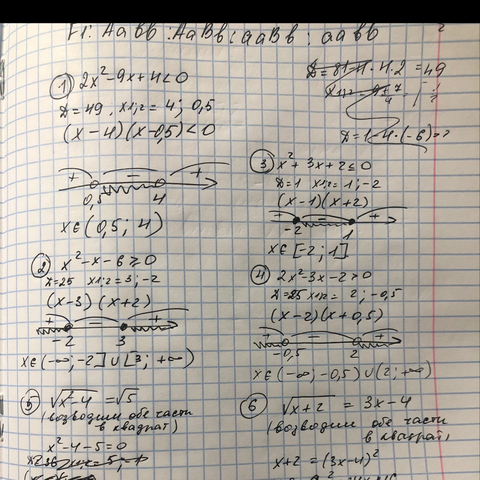 F1: AaBb : AaBb : aaBb : aabb
① 2x²-9x+4<0
D=49, x1;2=4; 0,5
(x-4)(x-0,5)<0
+ - +
0,5 4
x∈(0,5; 4)
② x²-x-6≥0
D=25 x1;2=3; -2
(x-3)(x+2)
+ - +
-2 3
x∈(-∞;-2]∪[3; +∞)
D=81-4·4·2=49
D=1-4·(-6)=
③ x²+3x+2≤0
D=1 x1;2=1; -2
(x-1)(x+2)
+ - +
-2 1
x∈[-2; 1]
④ 2x²-3x-2>0
D=25 x1;2=2; -0,5
(x-2)(x+0,5)
+ - +
-0,5 2
x∈(-∞;-0,5)∪(2; +∞)
⑤ √x²-4 = √5
(возводим обе части
в квадрат)
x²-4-5=0
⑥ √x+2 = 3x-4
(возводим обе части
в квадрат)
x+2=(3x-4)²